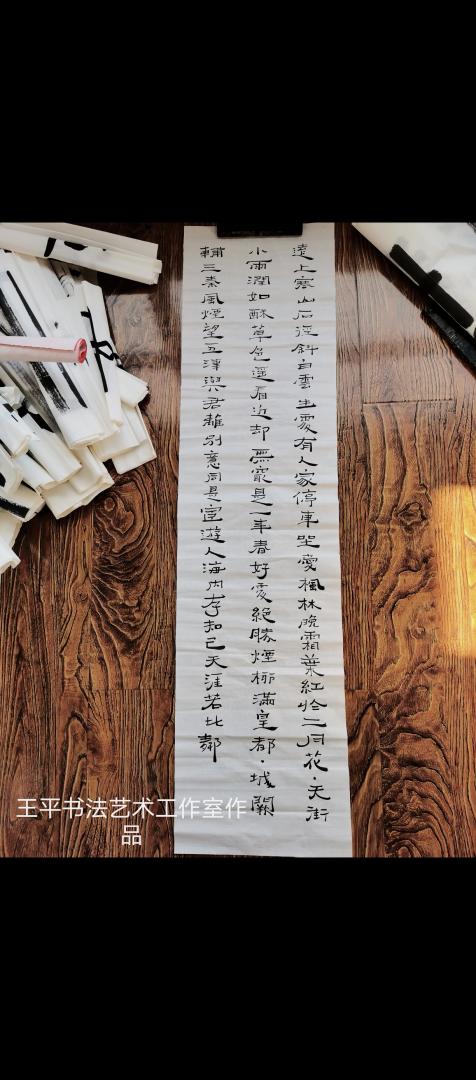 遠上寒山石徑斜白雲生處有人家停車坐愛楓林晚霜葉紅於二月花·天街
小雨潤如酥草色遥看近却無最是一年春好處絕勝煙柳滿皇都·城闕
輔三秦風煙望五津與君離別意同是宦遊人海内存知己天涯若比鄰
王平书法艺术工作室作
品